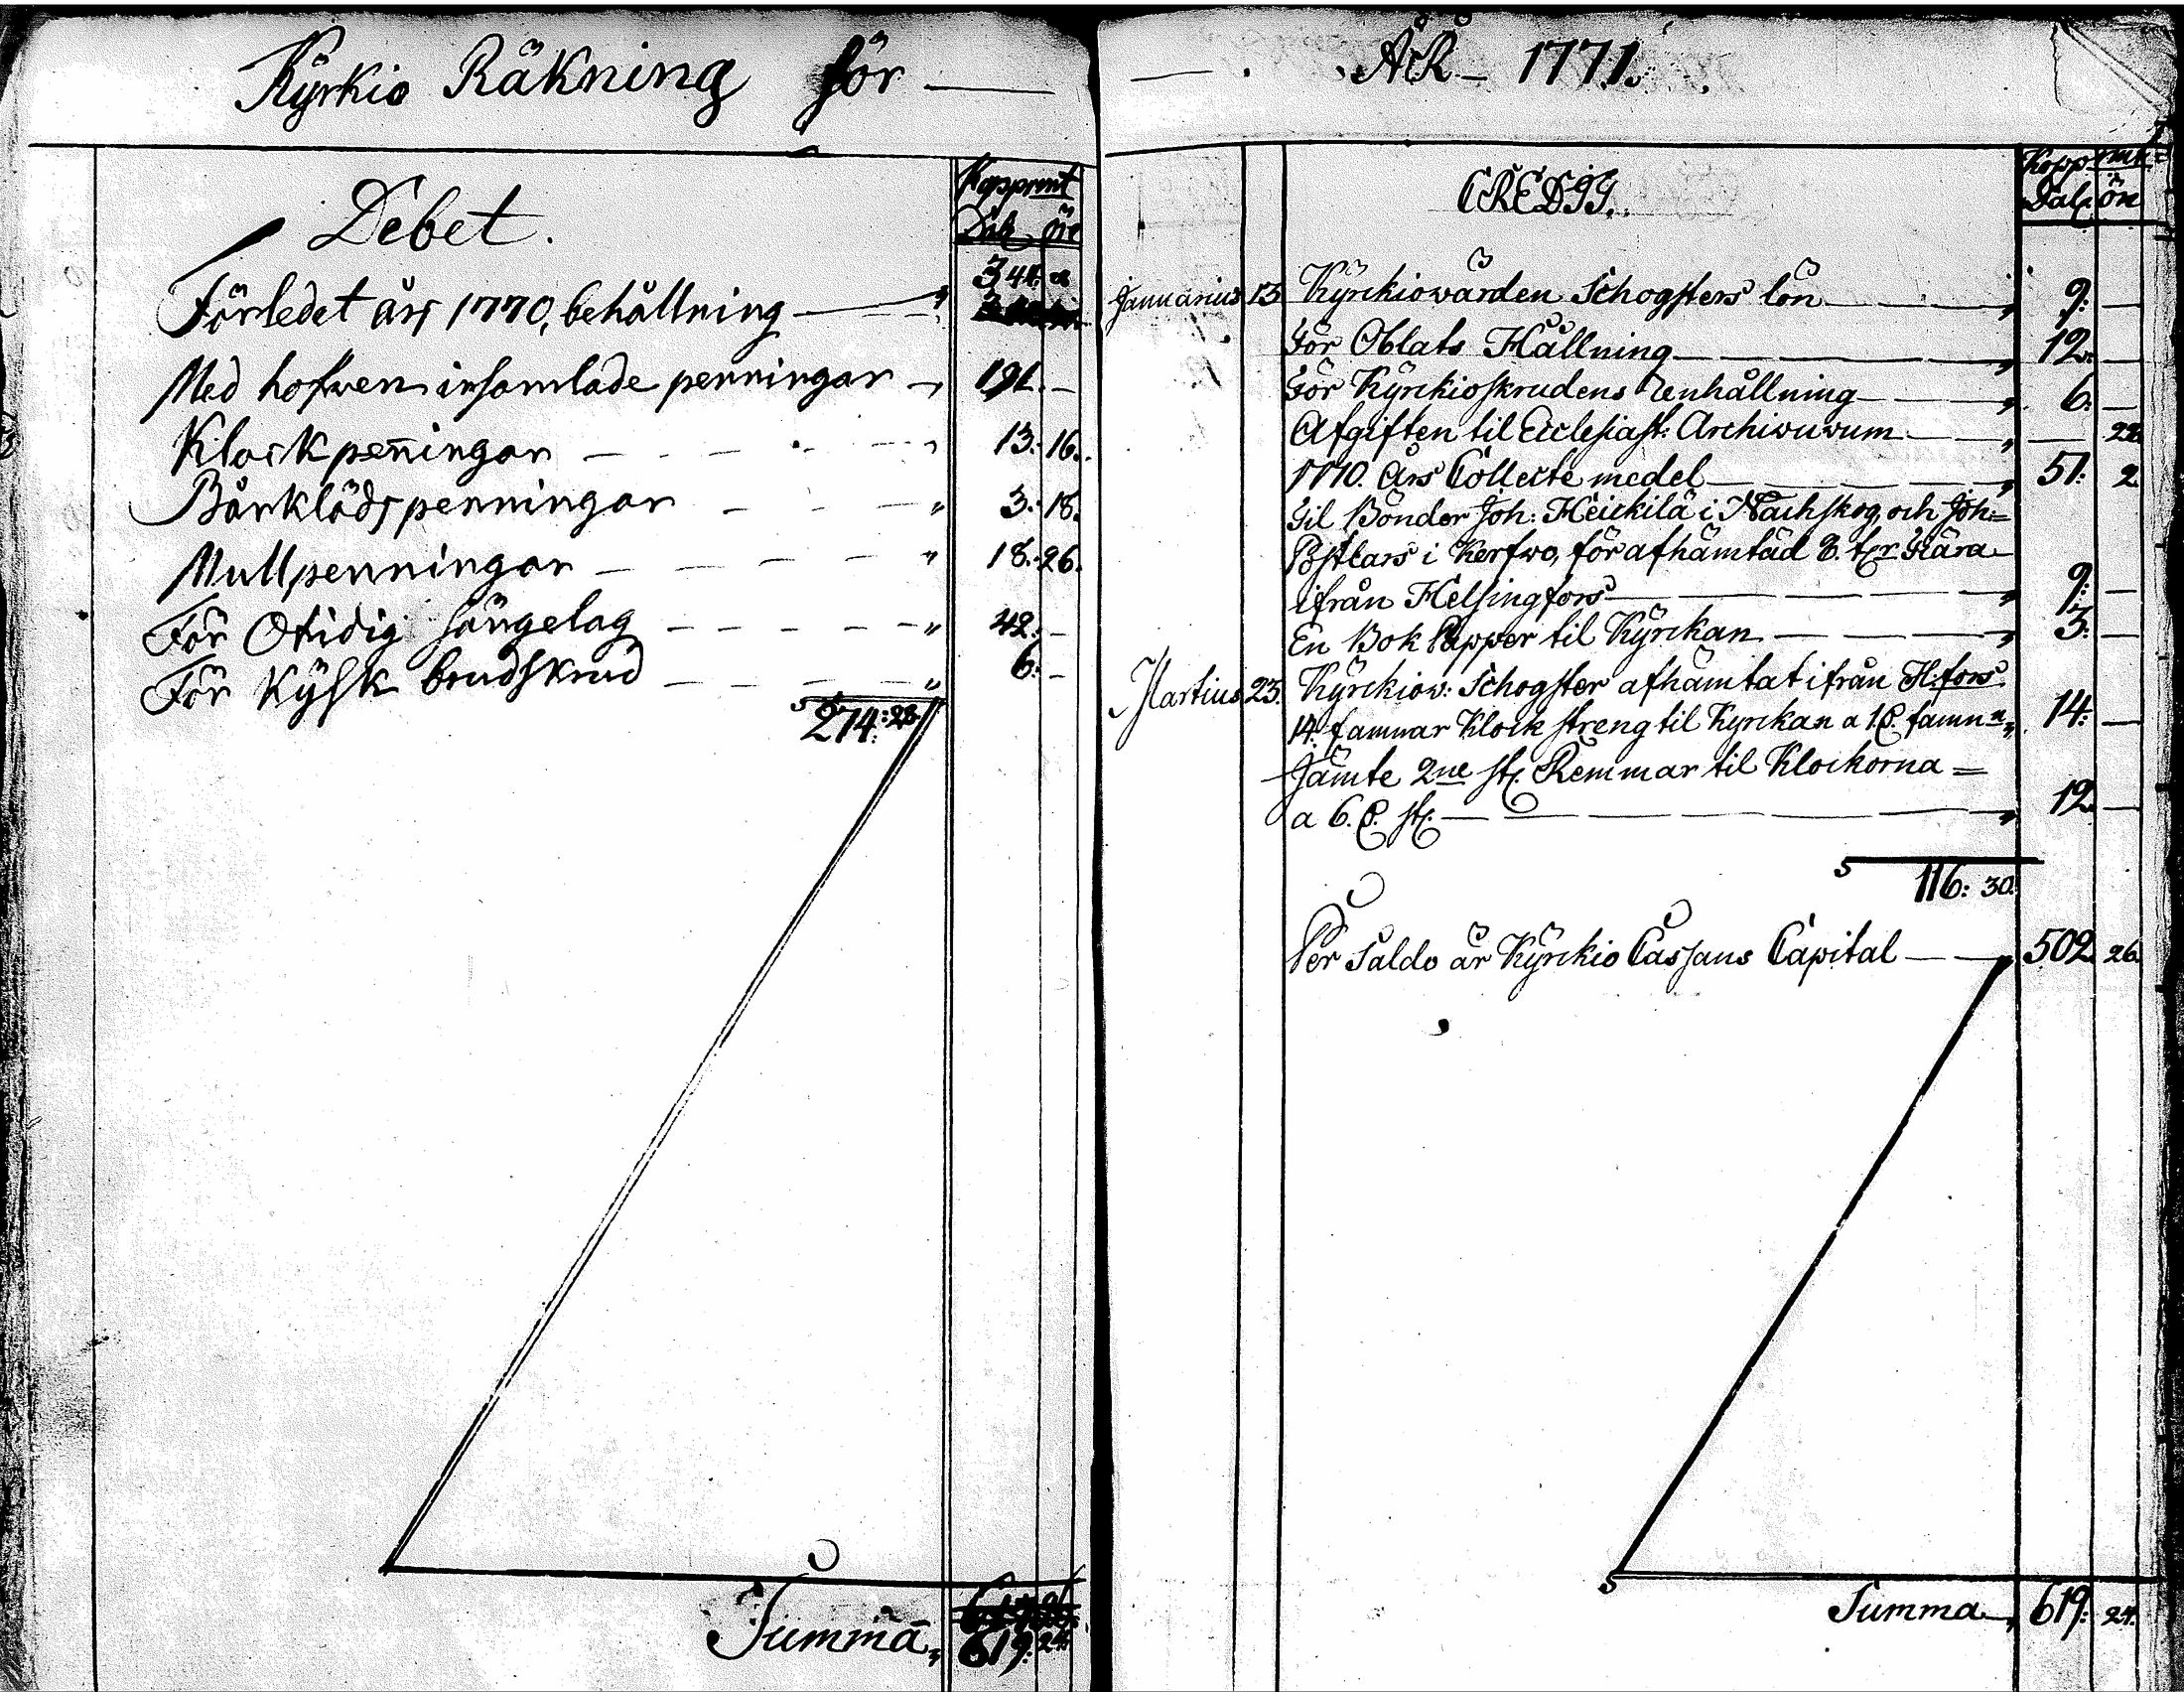 Kyrkio Räkning för
Debet.
Kopprmt
Dal. öre
Förledet års 1770, behållning 344.
Med hofwen insamlade penningar 191. –
Klockpeñingar 13. 16.
Bårklädspenningar 3. 18.
Mullpenningar 18. 26.
För Otidig sängelag 42. –
För Kysk brudskrud 6. –
274: 28.
Summa 619: 24.
ÅR 1771.
CREDIT.
Kopp mt
Dal. öre
Januarius 13 Kyrckiowärden Schogsters lön 9: –
För Oblats Hållning 12. –
För Kyrckioskrudens renhållning 6. –
Afgiften til Ecclesiast: Archiwuwum – 28
1770. Års Collecte medel 51: 2
Til Bönder Joh: Heickilä i Nackskog, och Joh=
Postlars i Kerfwo, för afhämtad 3. t:r Tiära
ifrån Helsingfors 9: –
En Bok Papper til Kyrckan 3: –
Martius 23. Kyrckiow: Schogster afhämtat ifrån H:fors
14. famnar Klock streng til Kyrckan a 1. famn 14: –
Jämte 2ne st: Remmar til Klockorna =
a 6. st: 12 –
116: 30.
Per Saldo är Kyrckio Cassans Capital 502. 26.
Summa 619: 24.